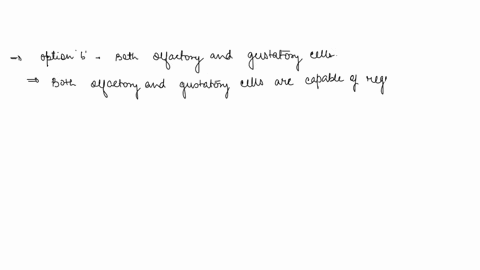 → option 'b' - Both olfactory and gustatory cells.
⇒ Both olfcetory and gustatory cells are capable of reg